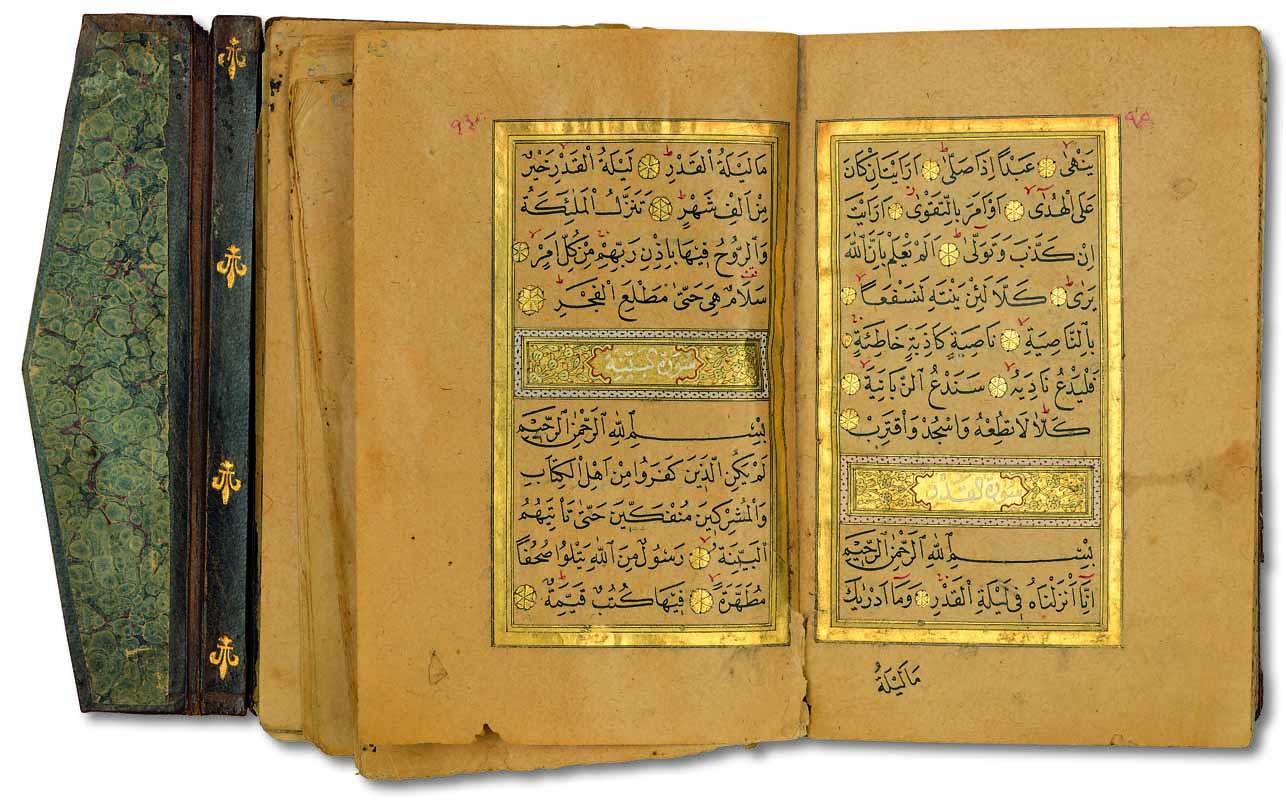 يَنْهٰى عَبْدًا اِذَا صَلّٰى اَرَاَيْتَ اِنْ كَانَ
عَلَى الْهُدٰى اَوْ اَمَرَ بِالتَّقْوٰى اَرَاَيْتَ
اِنْ كَذَّبَ وَتَوَلّٰى اَلَمْ يَعْلَمْ بِاَنَّ اللّٰهَ
يَرٰى كَلَّا لَئِنْ يَنْتَهِ لَنَسْفَعًا
بِالنَّاصِيَةِ نَاصِيَةٍ كَاذِبَةٍ خَاطِئَةٍ
فَلْيَدْعُ نَادِيَهُ سَنَدْعُ الزَّبَانِيَةَ
كَلَّا لَا تُطِعْهُ وَاسْجُدْ وَاقْتَرِبْ
سورة القدر
بِسْمِ اللّٰهِ الرَّحْمٰنِ الرَّحِيمِ
اِنَّا اَنْزَلْنَاهُ فِى لَيْلَةِ الْقَدْرِ وَمَا اَدْرٰيكَ
مَا لَيْلَةُ
مَا لَيْلَةُ الْقَدْرِ لَيْلَةُ الْقَدْرِ خَيْرٌ
مِنْ اَلْفِ شَهْرٍ تَنَزَّلُ الْمَلٰئِكَةُ
وَالرُّوحُ فِيهَا بِاِذْنِ رَبِّهِمْ مِنْ كُلِّ اَمْرٍ
سَلَامٌ هِىَ حَتّٰى مَطْلَعِ الْفَجْرِ
سورة البينة
بِسْمِ اللّٰهِ الرَّحْمٰنِ الرَّحِيمِ
لَمْ يَكُنِ الَّذِينَ كَفَرُوا مِنْ اَهْلِ الْكِتَابِ
وَالْمُشْرِكِينَ مُنْفَكِّينَ حَتّٰى تَأْتِيَهُمُ
الْبَيِّنَةُ رَسُولٌ مِنَ اللّٰهِ يَتْلُوا صُحُفًا
مُطَهَّرَةً فِيهَا كُتُبٌ قَيِّمَةٌ